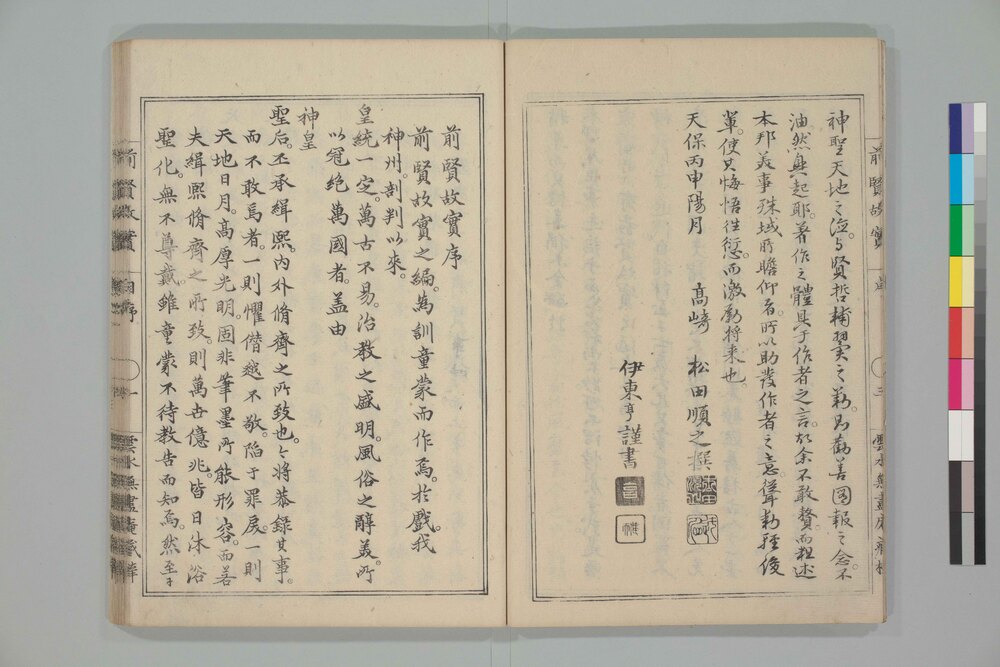 神聖天地之泣与賢哲補翼之勤。則勸善圖報之念。不
油然興起耶。著作之體具于作者之言。故余不敢贅。而粗述
本邦美事殊域所瞻仰者。所以助發作者之意從勤輕俊
輩。使其悔悟往愆。而激勵將来也。
天保丙申陽月 髙崎 松田順之撰
伊東亨謹書
前賢故實序
前賢故實之編。為訓童蒙而作焉。於戲。我
神州。剖判以來。
皇統一定。萬古不易。治教之盛明。風俗之醇美。所
以冠絶萬國者。盖由
神皇
聖后。丕承緝熙。內外脩齊之所致也。今將恭錄其事。
而不敢焉者。一則懼僭越不敬。陷于罪戾。一則
天地日月。髙厚光明。固非筆墨所能形容。而若
夫緝熙脩齊之所致。則萬世億兆。皆日沐浴
聖化。無不尊戴。雖童蒙不待教告而知焉。然至于
前賢故實
雲水無盡庵藏